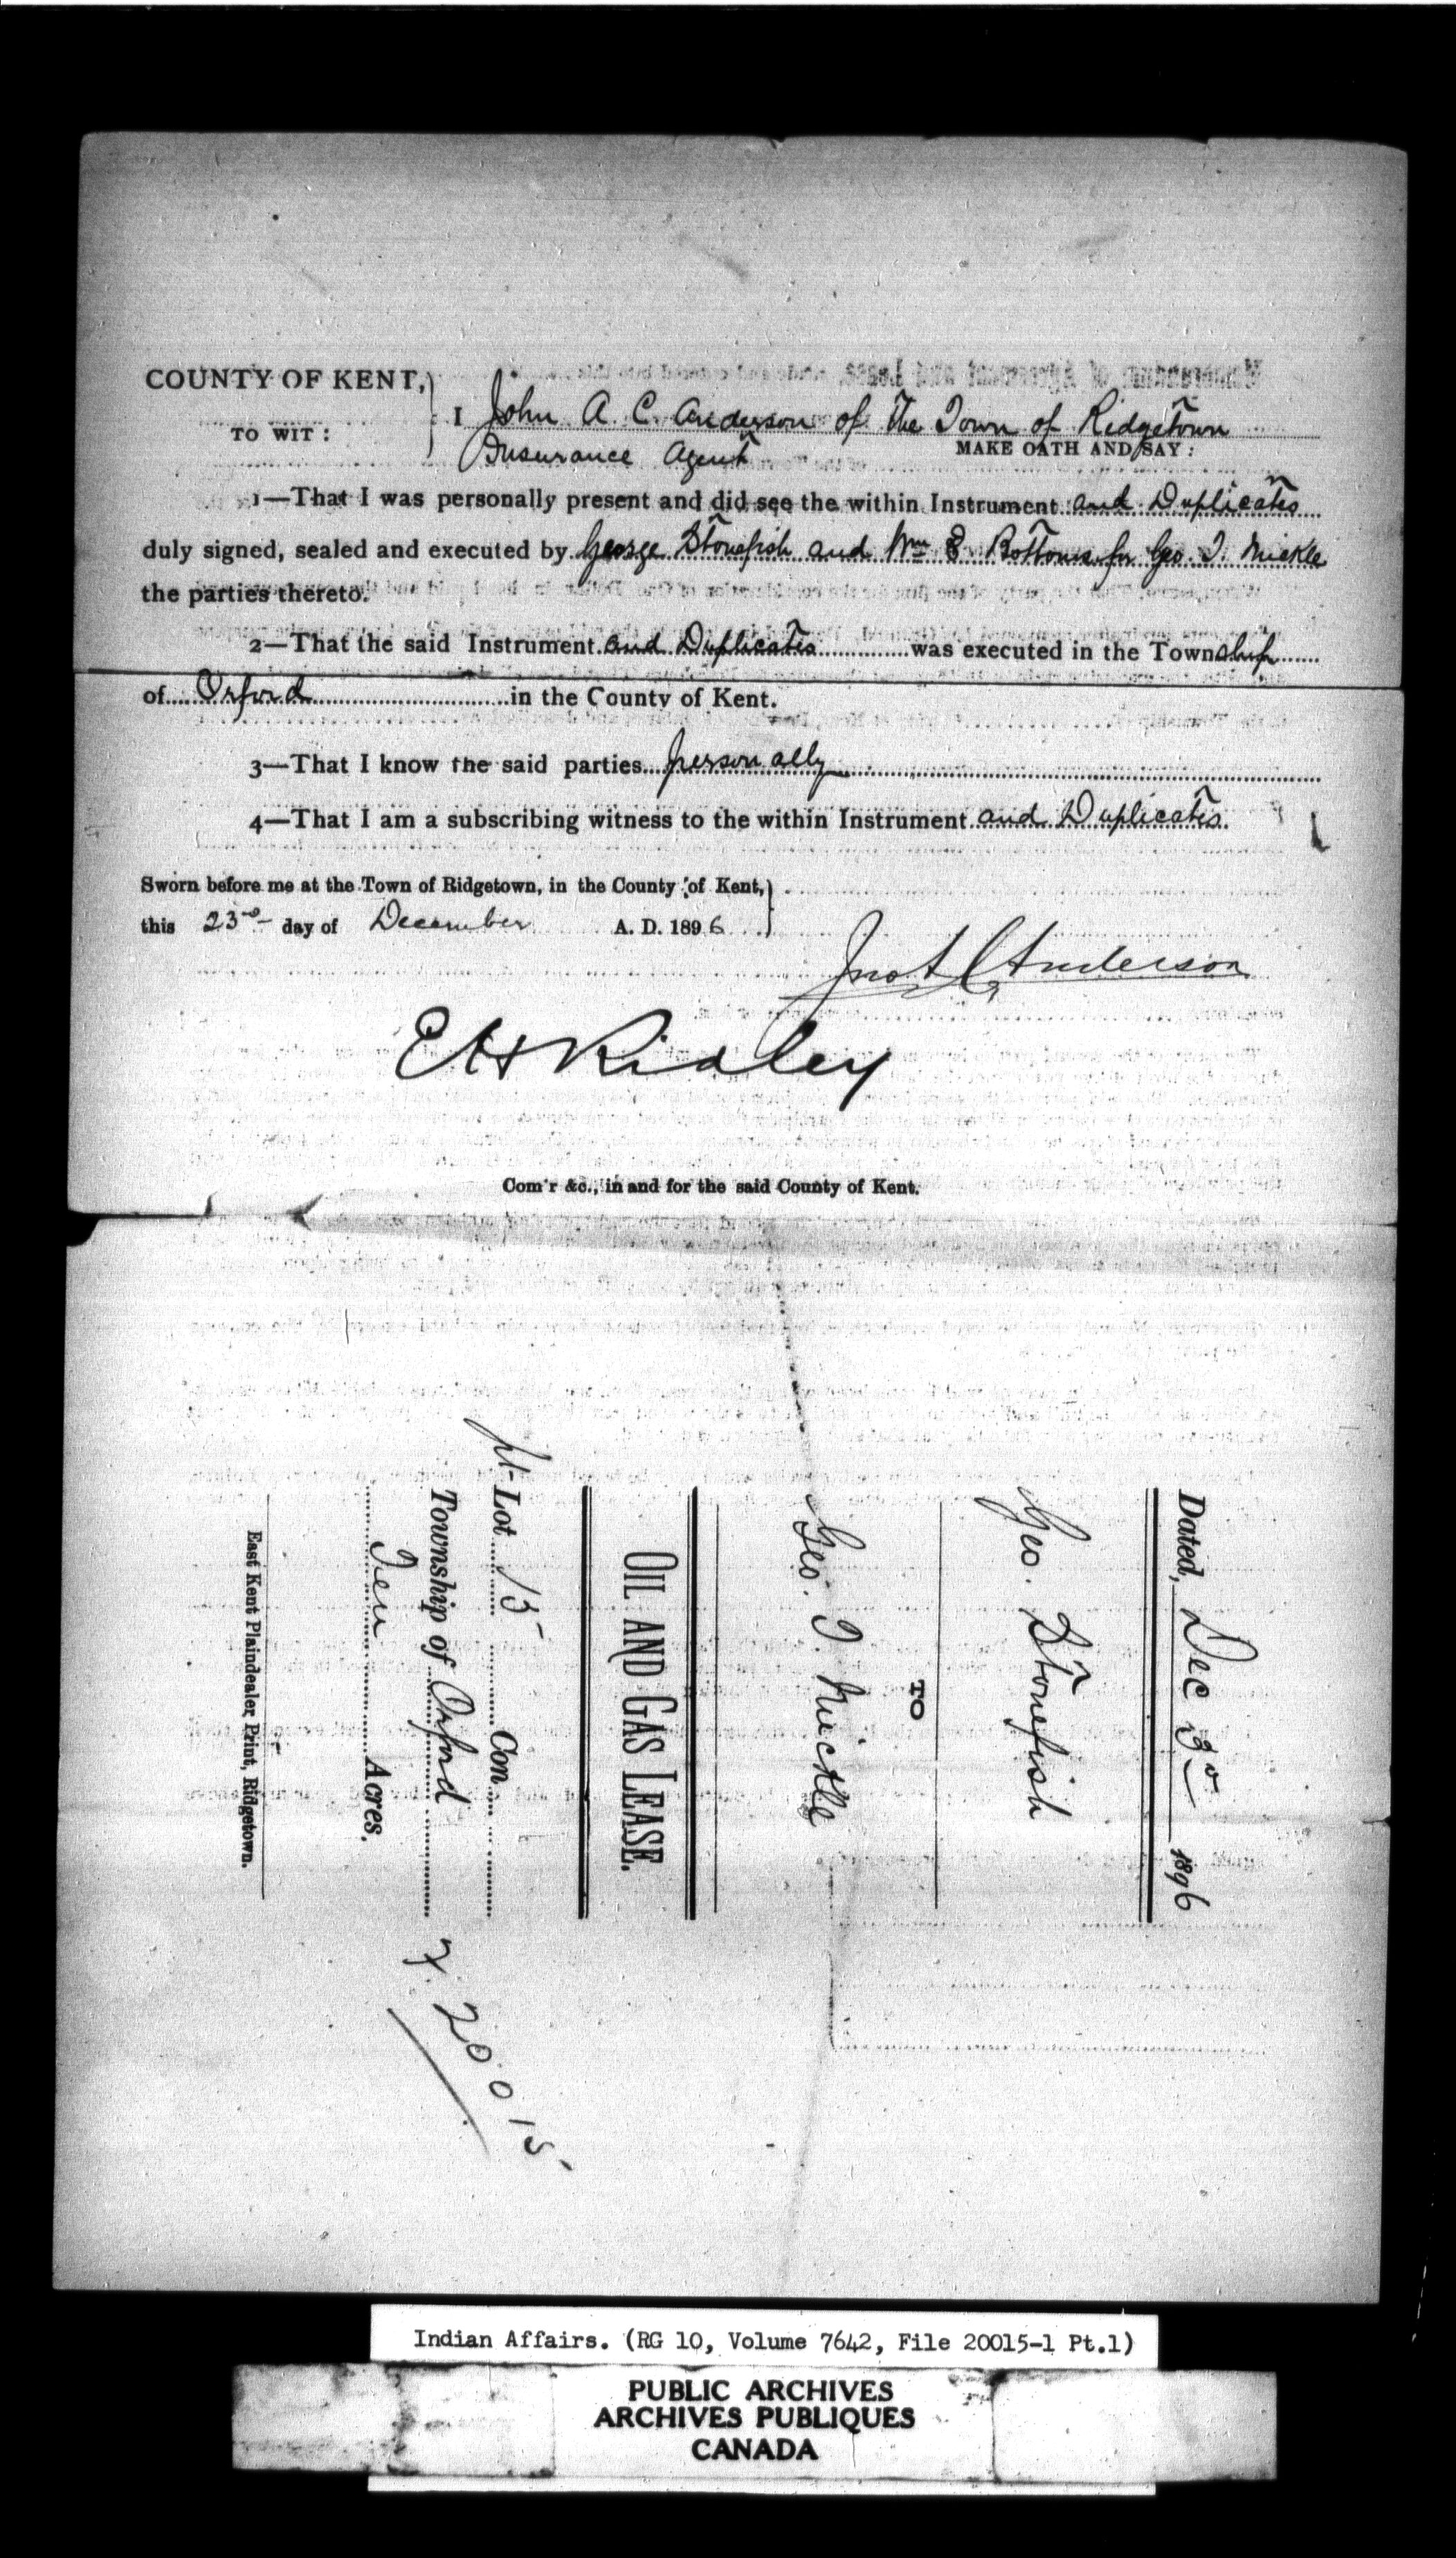 COUNTY OF KENT,
TO WIT :
I John A. C. Anderson of the Town of Ridgetown
Insurance Agent MAKE OATH AND SAY :
1—That I was personally present and did see the within Instrument and Duplicates
duly signed, sealed and executed by George Stonefish and Wm E Bottoms for Geo. T. Mickle
the parties thereto.
2—That the said Instrument and Duplicates was executed in the Township
of Orford in the County of Kent.
3—That I know the said parties personally
4—That I am a subscribing witness to the within Instrument and Duplicates.
Sworn before me at the Town of Ridgetown, in the County of Kent,
this 23rd day of December A. D. 1896
Jno A C Anderson
E H Ridley
Com'r &c., in and for the said County of Kent.
Dated, Dec 1896
Geo. Stonefish
TO
Geo. T. Mickle
OIL AND GAS LEASE.
Lot 15 Con
Township of Orford
Ten Acres.
East Kent Plaindealer Print, Ridgetown.
20015
Indian Affairs. (RG 10, Volume 7642, File 20015-1 Pt.1)
PUBLIC ARCHIVES
ARCHIVES PUBLIQUES
CANADA